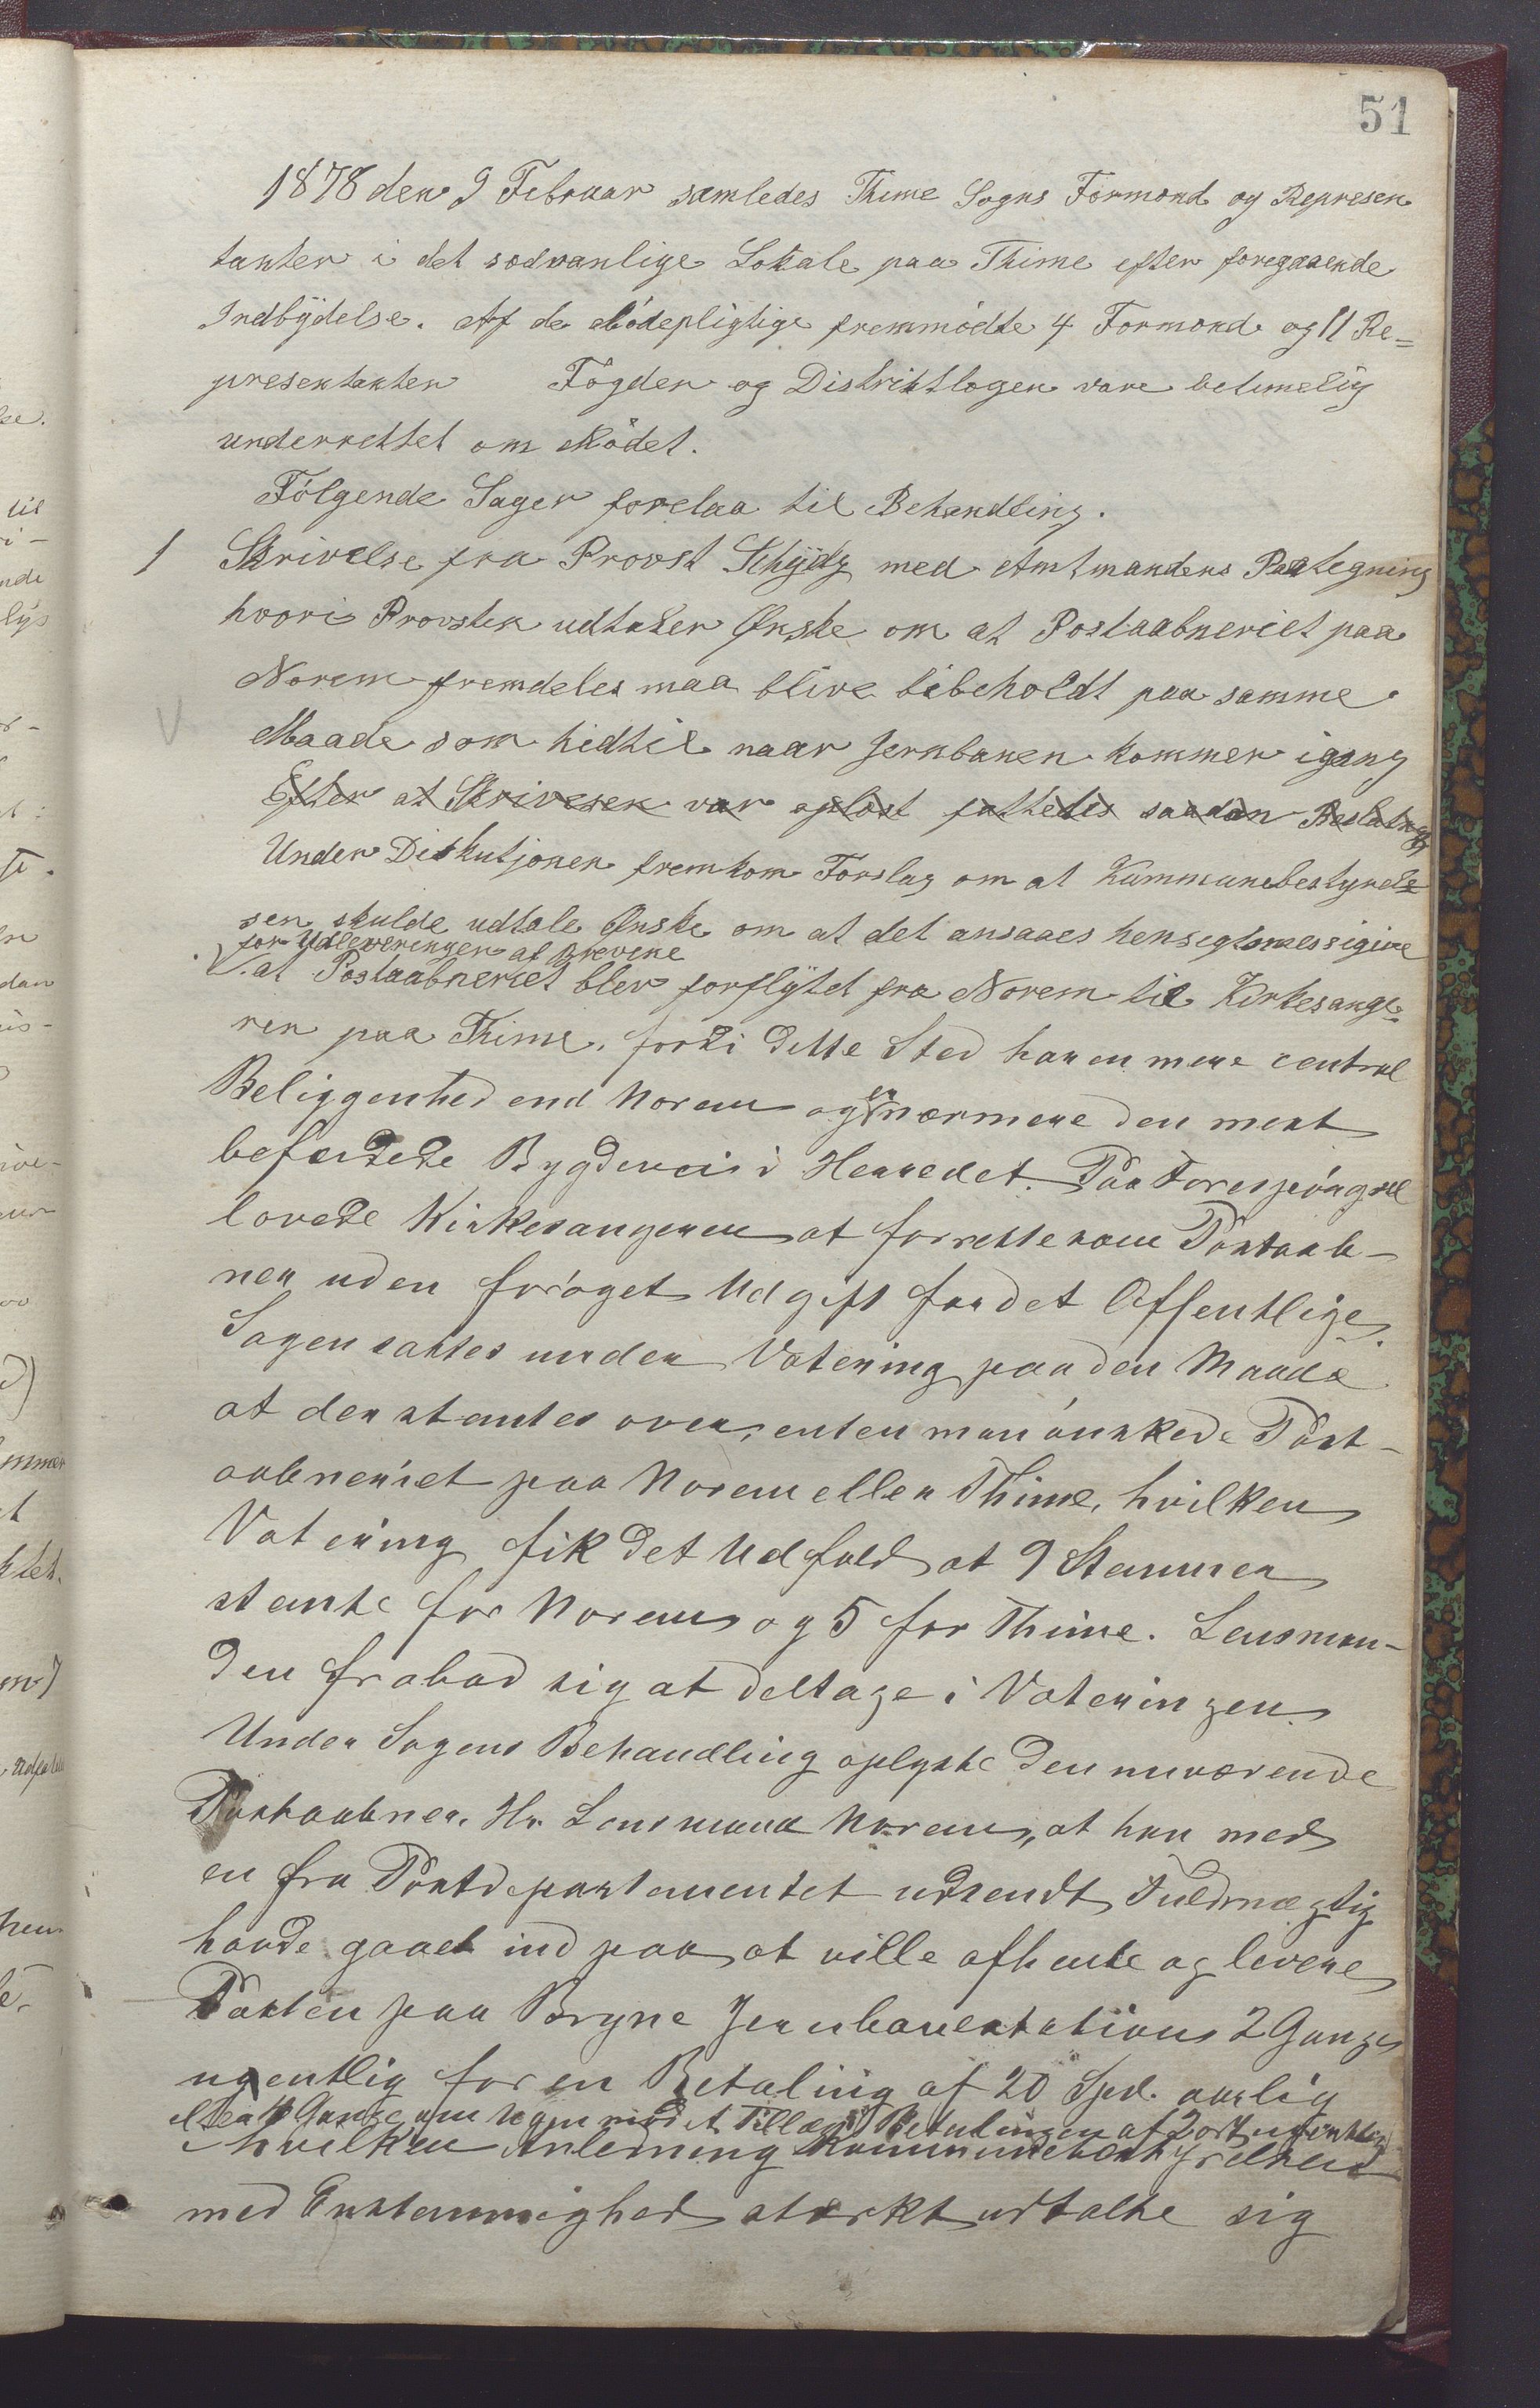 51
1878 den 9 Februar samledes Thime Sogns Formænd og Represen
tanter i det sædvanlige Lokale paa Thime efter foregaaende
Indbÿdelse. Af de Mödepligtige fremmödte 4 Formænd og 11 Re=
presentanter Fogden og Distriktlægen vare betimelig
underrettet om Mödet.
Fölgende Sager forelaa til Behandling.
1 Skrivelse fra Provst Schÿdz med Amtmandens Paategning
hvori Provsten udtaler Ønske om at Postaabneriet paa
Norem fremdeles maa blive bibeholdt paa samme
Maade som hidtil naar Jernbanen kommer igang
Efter at Skrivesen var oplæst fattedes saadan Beslutning
Under Diskutjonen fremkom Forslag om at Kummunebestyrels
sen skulde udtale Ønske om at det ansaaes hensigtsmessigere
for Udleveringen af Brevene
at Postaabneriet blev forflÿtet fra Norem til Kirkesange=
ren paa Thime, fordi dette Sted har en mere central
Beliggenhed end Norem og er nærmere den mest
befærdede Bygdevei i Herredet. Paa Forespörgsel
lovede Kirkesangeren at forrette som Postaab-
ner uden foröget Udgift for det Offentlige.
Sagen sattes under Votering paa den Maade
at der stemtes over, enten man önskede Post-
aabneriet paa Norem eller Thime, hvilken
Votering fik det Udfald at 9 Stemmer
stemte for Norem og 5 for Thime. Lensman-
den frabad sig at deltage i Voteringen
Under Sagens Behandling oplyste den nuværende
Postaabner, Hr. Lensmand Norem, at han med
en fra Postdepartementet udsendt Fuldmægtig
havde gaaet ind paa at ville afhente og levere
Posten paa Bryne Jernbanestation 2 Gange
ugentlig for en Betaling af 20 Spd. aarlig
eller 4 Gange om Ugen med et Tillæg i Betalingen af 2 ort ugentlig
i hvilken Anledning Kommunebestyrelsen
med Enstemmighed stærkt udtalte sig